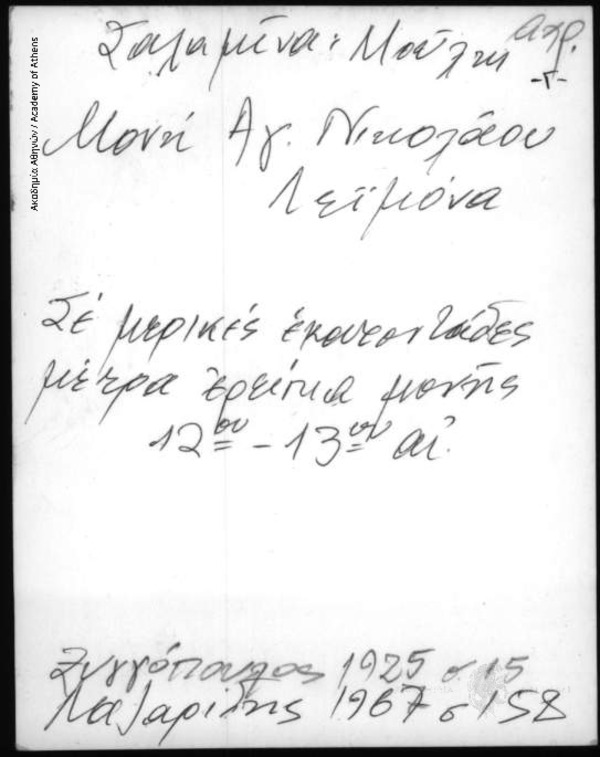 Σαλαμίνα: Μούλκι αχρ.
-Γ-
Μονή Αγ. Νικολάου
Λεϊμόνα
Σέ μερικές ἑκατοντάδες
μέτρα ἐρείπια μονῆς
12ου - 13ου αἰ.
Ξυγγόπουλος 1925 σ 15
Λαζαρίδης 1967 σ 158
Ακαδημία Αθηνών / Academy of Athens